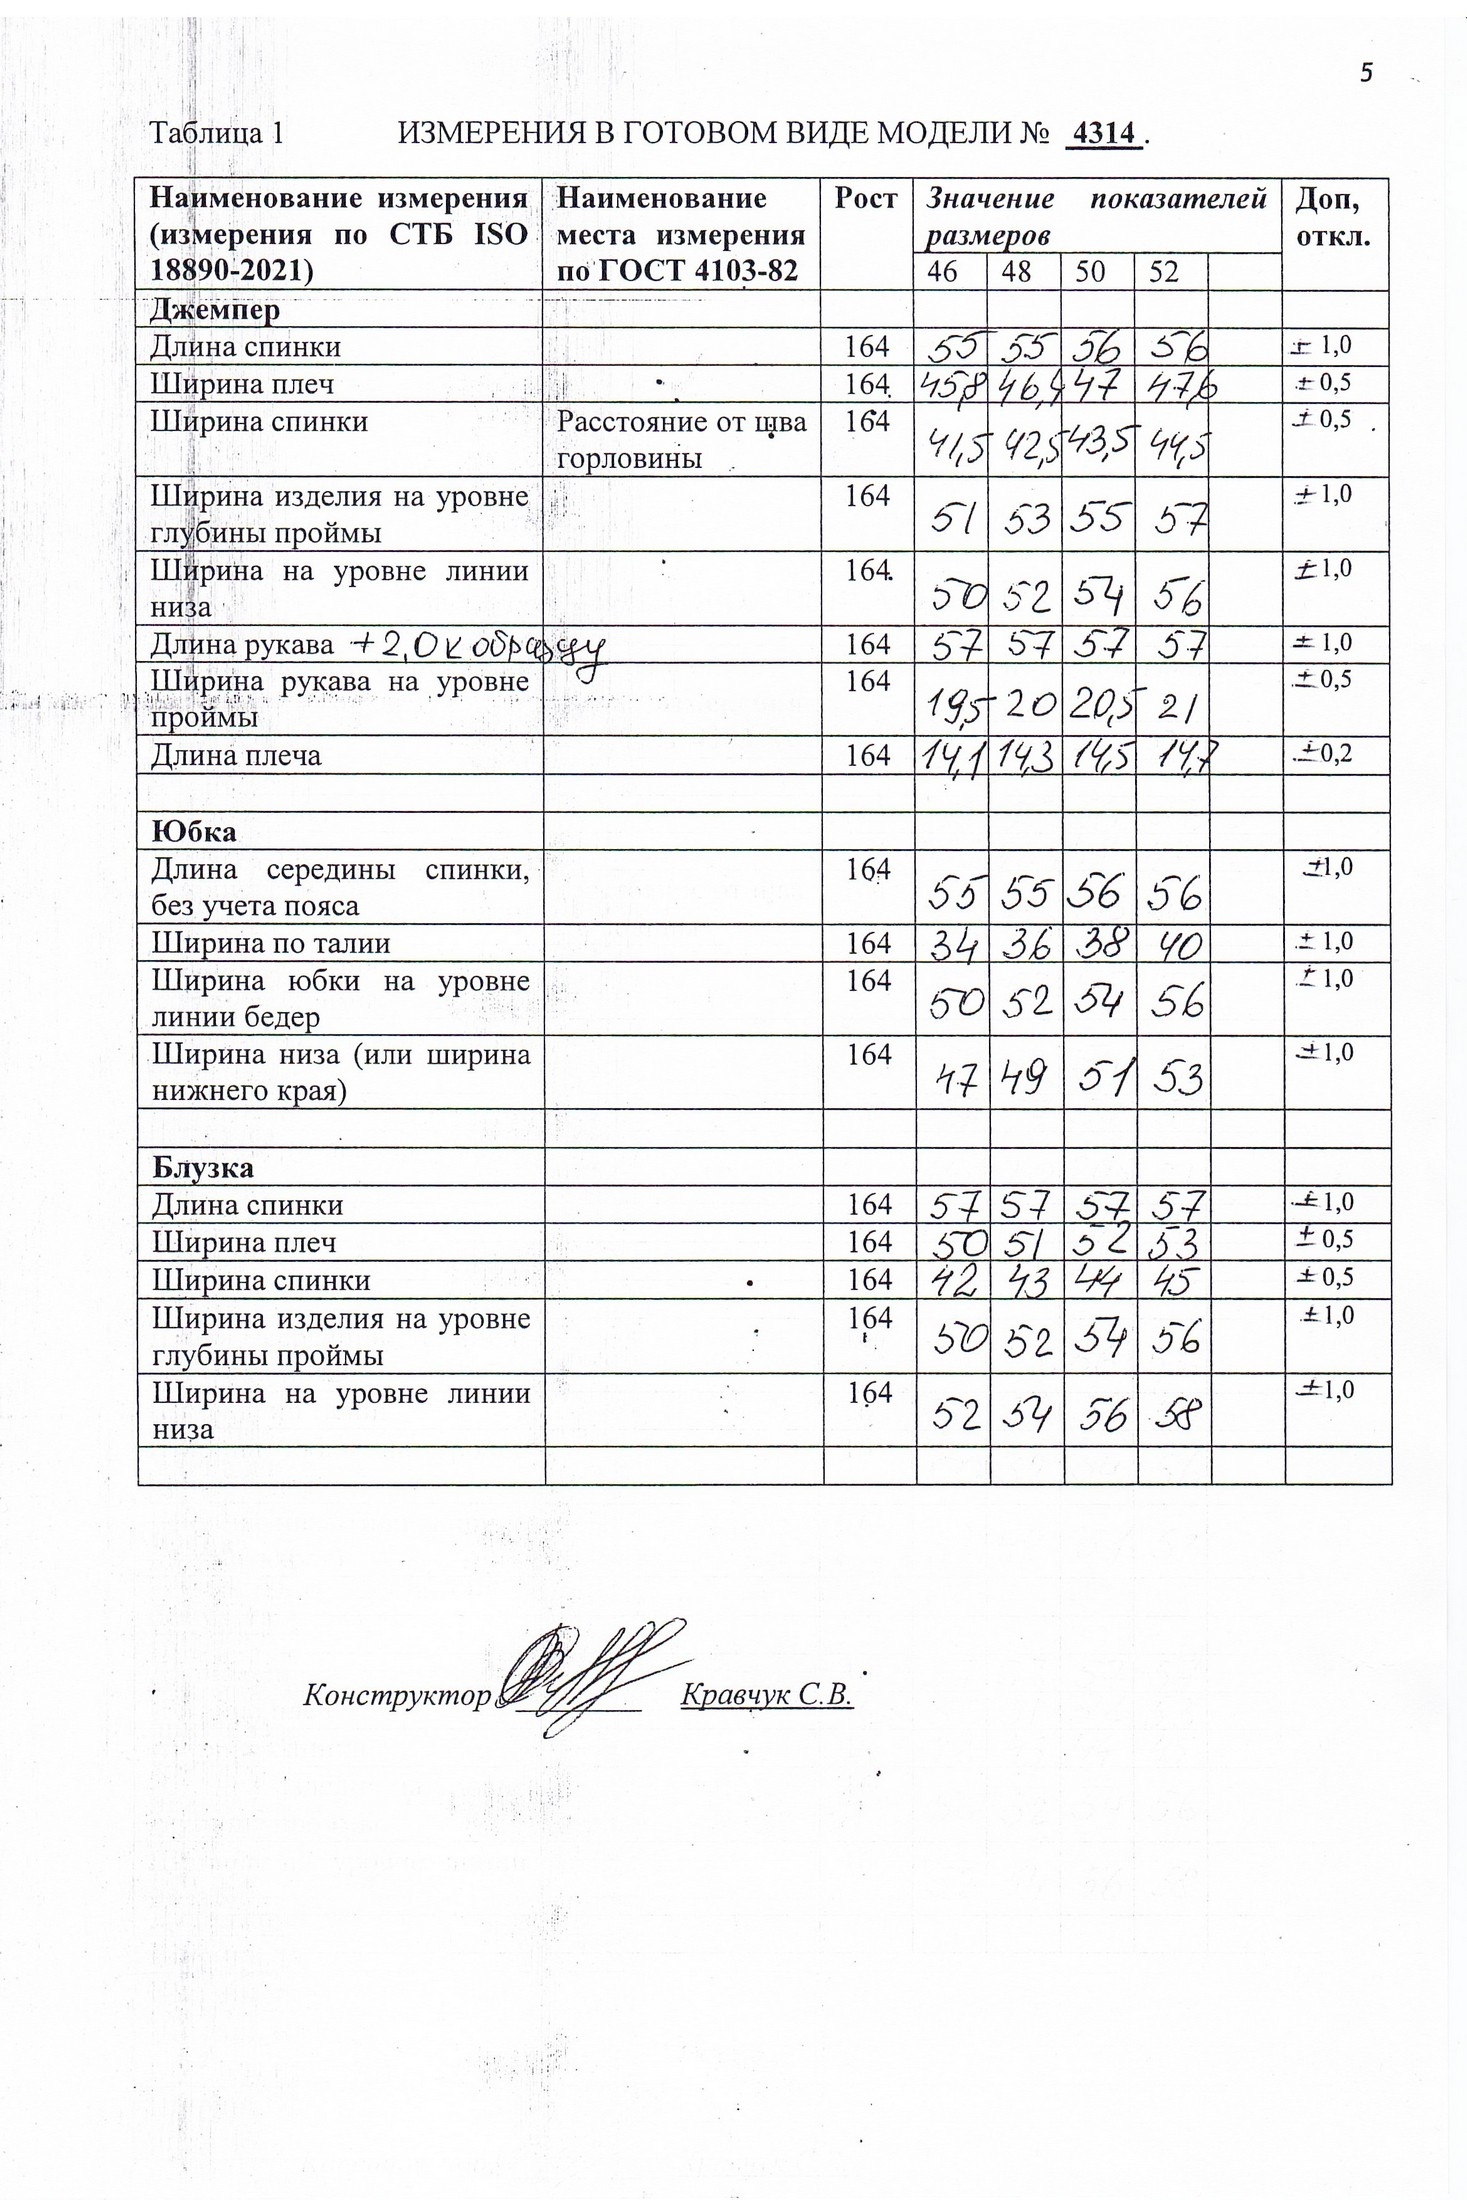 5
Таблица 1 ИЗМЕРЕНИЯ В ГОТОВОМ ВИДЕ МОДЕЛИ № 4314.
Наименование измерения (измерения по СТБ ISO 18890-2021) Наименование места измерения по ГОСТ 4103-82 Рост Значение показателей размеров Доп, откл.
46 48 50 52
Джемпер
Длина спинки 164 55 55 56 56 ± 1,0
Ширина плеч 164 45,8 46,4 47 47,6 ± 0,5
Ширина спинки Расстояние от шва горловины 164 41,5 42,5 43,5 44,5 ± 0,5
Ширина изделия на уровне глубины проймы 164 51 53 55 57 ± 1,0
Ширина на уровне линии низа 164 50 52 54 56 ± 1,0
Длина рукава +2,0 к образцу 164 57 57 57 57 ± 1,0
Ширина рукава на уровне проймы 164 19,5 20 20,5 21 ± 0,5
Длина плеча 164 14,1 14,3 14,5 14,7 ±0,2
Юбка
Длина середины спинки, без учета пояса 164 55 55 56 56 ±1,0
Ширина по талии 164 34 36 38 40 ± 1,0
Ширина юбки на уровне линии бедер 164 50 52 54 56 ± 1,0
Ширина низа (или ширина нижнего края) 164 47 49 51 53 ±1,0
Блузка
Длина спинки 164 57 57 57 57 ± 1,0
Ширина плеч 164 50 51 52 53 ± 0,5
Ширина спинки 164 42 43 44 45 ± 0,5
Ширина изделия на уровне глубины проймы 164 50 52 54 56 ± 1,0
Ширина на уровне линии низа 164 52 54 56 58 ±1,0
Конструктор Кравчук С.В.